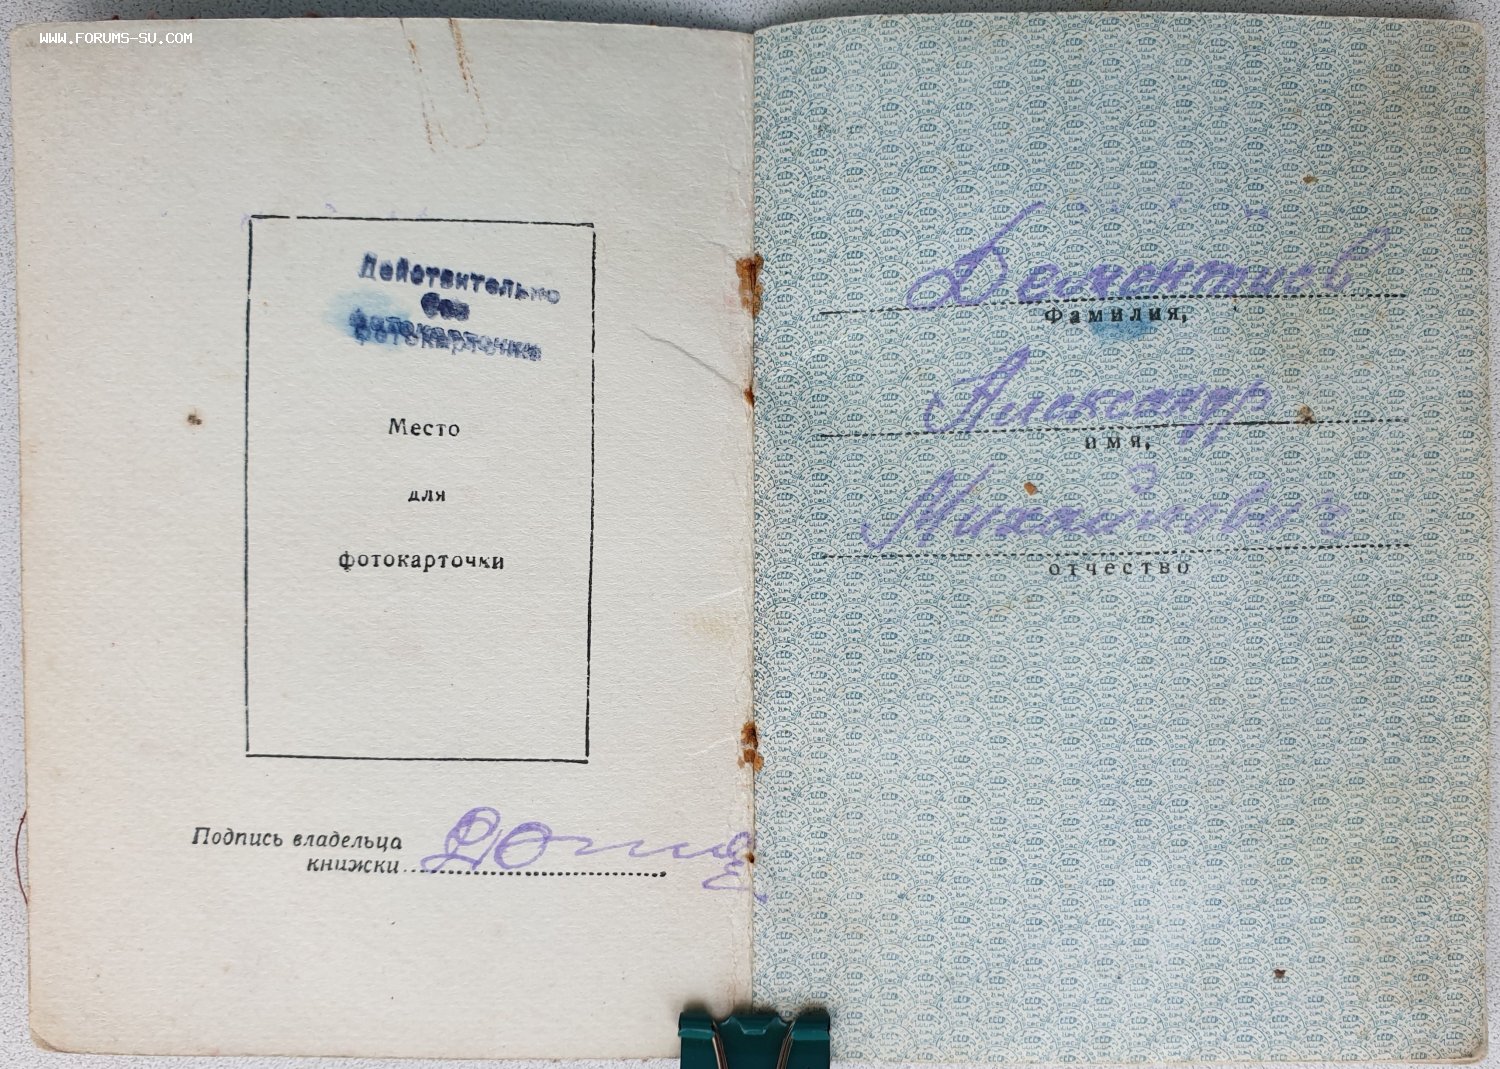 WWW.FORUMS-SU.COM
Действительно
без
фотокарточки
Место
для
фотокарточки
Подпись владельца
книжки
Дементьев
Фамилия,
Александр
имя,
Михайлович
отчество